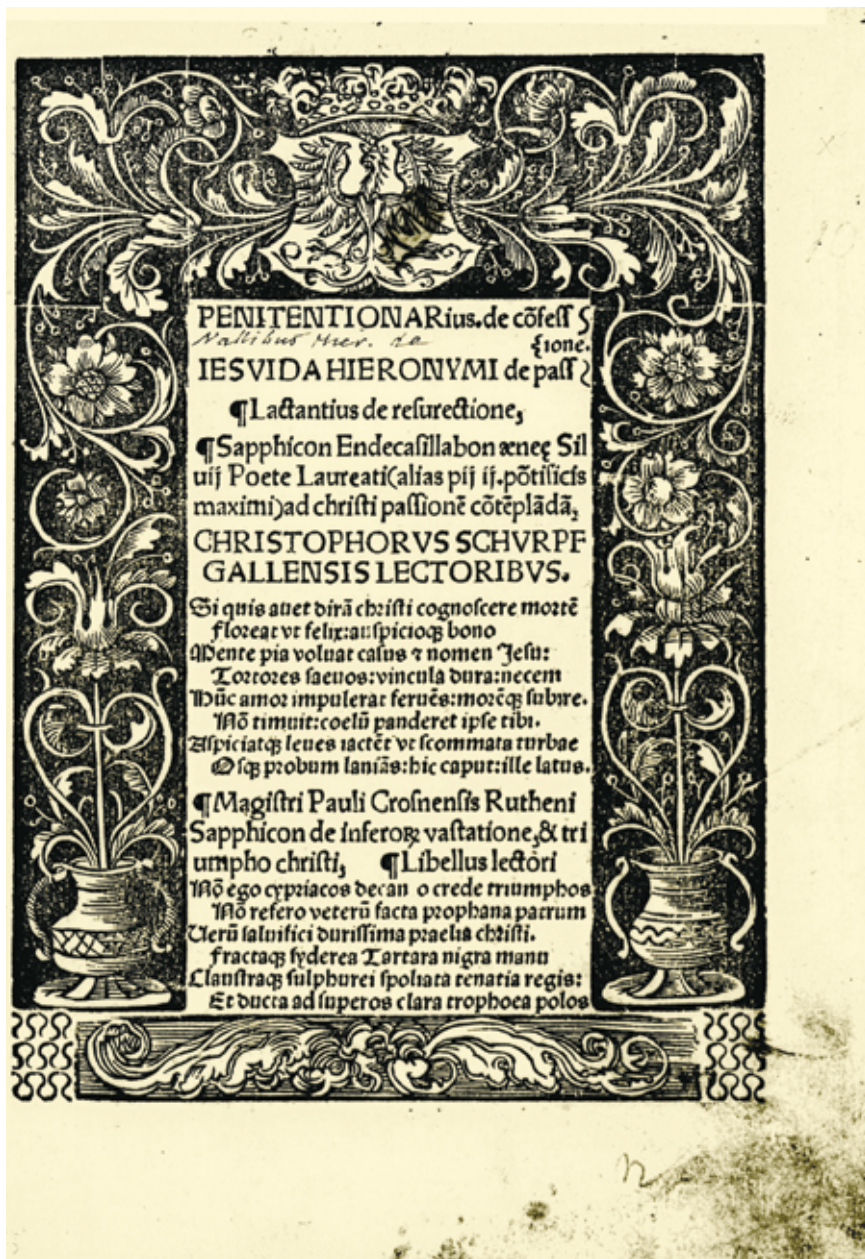 PENITENTIONARius. de cõfeſſ
Vallibus Hier. de
ſione.
IESVIDA HIERONYMI de paſſ
¶Lactantius de reſurectione,
¶Sapphicon Endecaſillabon æneę Sil
uij Poete Laureati(alias pij ij. põtificis
maximi)ad chriſti paſſionẽ cõtẽplãdã,
CHRISTOPHORVS SCHVRPF
GALLENSIS LECTORIBVS.
Si quis auet dirã chriſti cognoſcere mortẽ
Floreat vt felix:auſpicioqꝫ bono
Mente pia voluat caſus ⁊ nomen Jeſu:
Tortores ſaeuos:vincula dura:necem
Hũc amor impulerat feruẽs:morẽqꝫ ſubire.
Nõ timuit:coelũ panderet ipſe tibi.
Aſpiciatqꝫ leues iactẽt vt ſcommata turbae
Oſqꝫ probum laniãs:hic caput:ille latus.
¶Magiſtri Pauli Croſnenſis Rutheni
Sapphicon de inferoꝝ vaſtatione,& tri
umpho chriſti, ¶Libellus lectori
Nõ ego cypriacos decan o crede triumphos
Nõ refero veterũ facta prophana patrum
Uerũ ſaluifici duriſſima praelia chriſti.
Fractaqꝫ ſyderea Tartara nigra manu
Clauſtraqꝫ ſulphurei ſpoliata tenatia regis:
Et ducta ad ſuperos clara trophoea polos